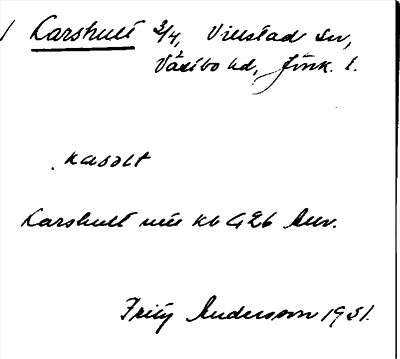 / Karshult 3/4, Villstad sn,
Västbo hd, Jönk. l.
kasølt
Karshult mtl Kb G26 Avv.
Fritz Andersson 1951.